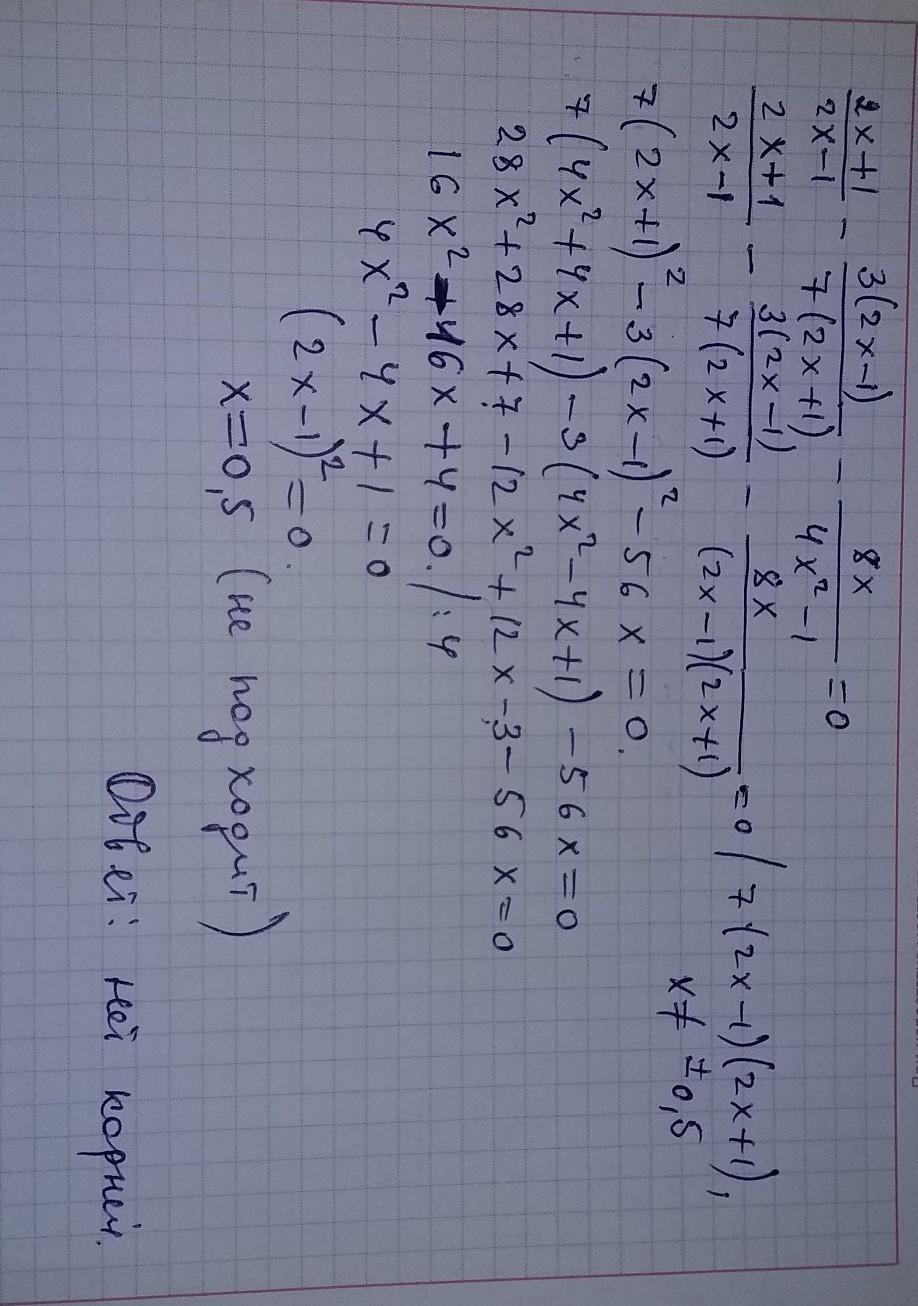 (2x+1)/(2x-1) - 3(2x-1)/(7(2x+1)) - 8x/(4x²-1) = 0
(2x+1)/(2x-1) - 3(2x-1)/(7(2x+1)) - 8x/((2x-1)(2x+1)) = 0 / 7(2x-1)(2x+1),
x ≠ ±0,5
7(2x+1)² - 3(2x-1)² - 56x = 0.
7(4x²+4x+1) - 3(4x²-4x+1) - 56x = 0
28x² + 28x + 7 - 12x² + 12x - 3 - 56x = 0
16x² - 16x + 4 = 0. / :4
4x² - 4x + 1 = 0
(2x-1)² = 0.
x = 0,5 (не подходит)
Ответ: нет корней.